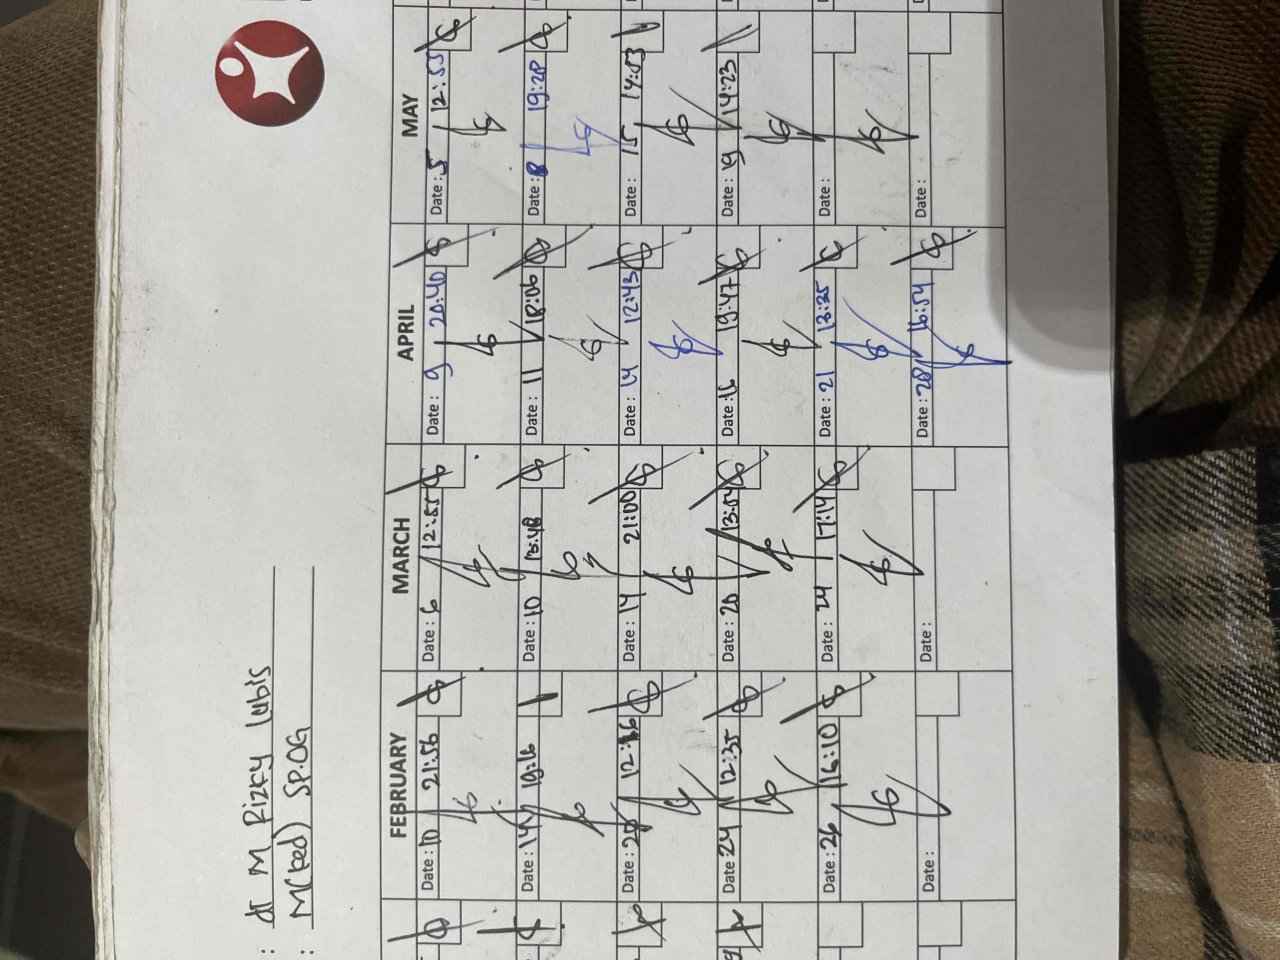 : dr M Rizky Lubis
: M(Ked) SP.OG
FEBRUARY MARCH APRIL MAY
Date: 10 21:56 Date: 6 12:55 Date: 9 20:40 Date: 5 12:53
Date: 14 19:16 Date: 10 13:48 Date: 11 18:06 Date: 8 19:28
Date: 20 12:16 Date: 14 21:00 Date: 14 12:43 Date: 15 14:03
Date: 24 12:35 Date: 20 13:54 Date: 16 19:47 Date: 19 14:23
Date: 26 16:10 Date: 24 17:14 Date: 21 13:35 Date:
Date: Date: Date: 28 16:54 Date: